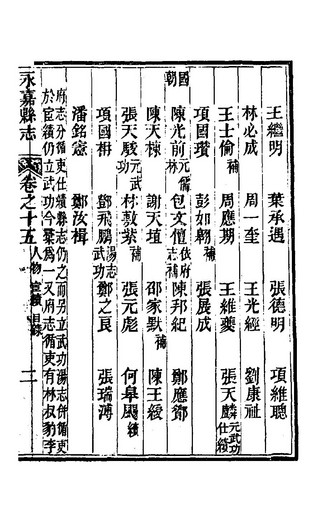 王繼明 葉承遇 張德明 項維聰
林必成 周一奎 王光經 劉康祉
王士偷補 周應期 王維夔 張天麟元武功仕績
項國瓚 彭如翱補 張展成
國朝
陳光前元儒林 包文𠐺依府志補 陳邦紀 鄭應鄧
陳天棟 謝天埴 邵家默補 陳王綬
張天駿元武功 林敦紫補 張元彪 何舉颺續
項國枬 鄧飛鵬湯志武功 鄭之良 張瑞溥
潘銘憲 鄭汝楫
府志分循吏仕績縣志仍之而另立武功湯志併循吏
於宦績仍立武功今彙為一又府志循吏有林叔豹李
永嘉縣志 卷之十五 人物 宦績 目錄 二